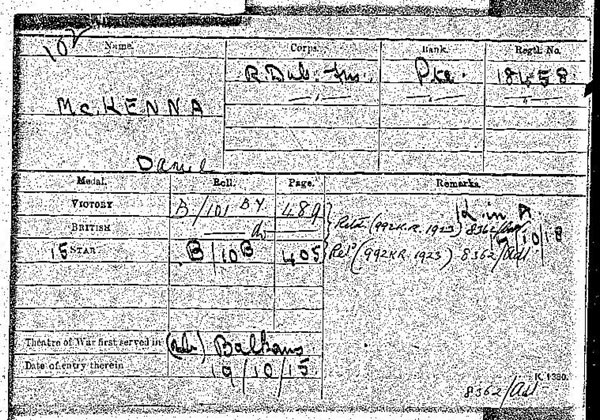 102
Name. Corps. Rank. Regtl. No.
R. Dub. Fus. Pte. 18458
McKENNA
Daniel
Medal. Roll. Page. Remarks.
VICTORY B/101 B4 489
BRITISH Retd (992 K.R. 1923) 8362/Adl
15 STAR B/10B 405 Retd (992 K.R. 1923) 8362/Adl
Theatre of War first served in Balkans
Date of entry therein 9/10/15
K. 1380.
8362/Adl